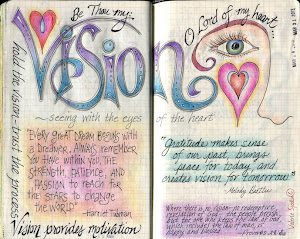 Be Thou my
Vision
O Lord of my heart...
~seeing with the eyes
of the heart
hold the vision~trust the process
Every great dream begins with
a dreamer. Always remember
you have within you the
strength, patience, and
passion to reach for
the stars to change
the world.
~Harriet Tubman
Vision provides motivation
"Gratitude makes sense
of our past, brings
peace for today, and
creates vision for tomorrow."
~Melody Beattie
Where there is no vision
the people perish
happy and blessed
Proverbs 29:18